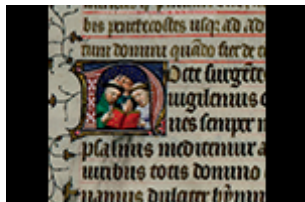 bes penthecostes usq; ad ad
tum domini quādo fier de
Octe surgēte
uigilemus o
nes semper
psalmis meditemur a
uiribus totis domino
namus dulciter hymn